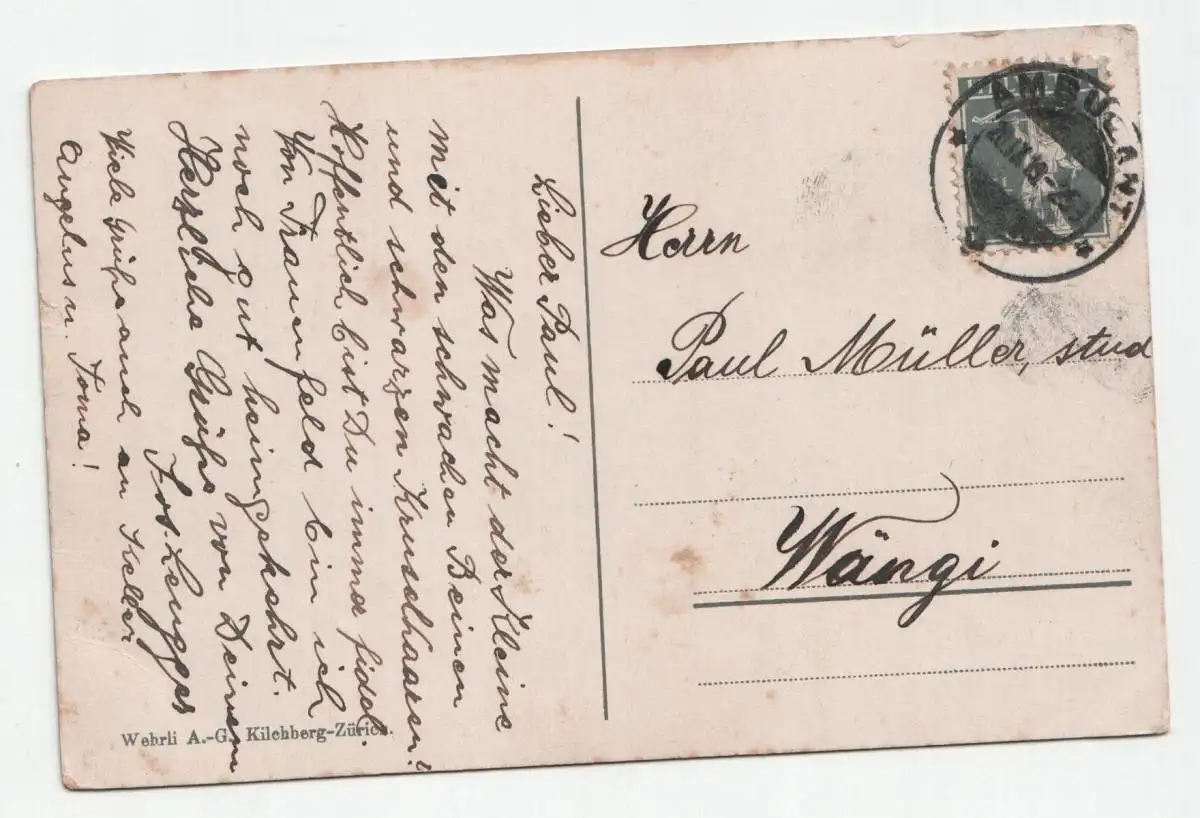 Lieber Paul!
Was macht der Kleine
mit den schwachen Beinen
und schwarzen Kruselhaaren?
Hoffentlich bist Du immer fidel.
Von Frauenfeld bin ich
noch gut heimgekehrt.
Herzliche Grüße von Deinem
Jos.
Viele Grüße auch an Keller
Angelus u. Toma!
Wehrli A.-G. Kilchberg-Zürich.
AMBULANT
Herrn
Paul Müller, stud
Wängi